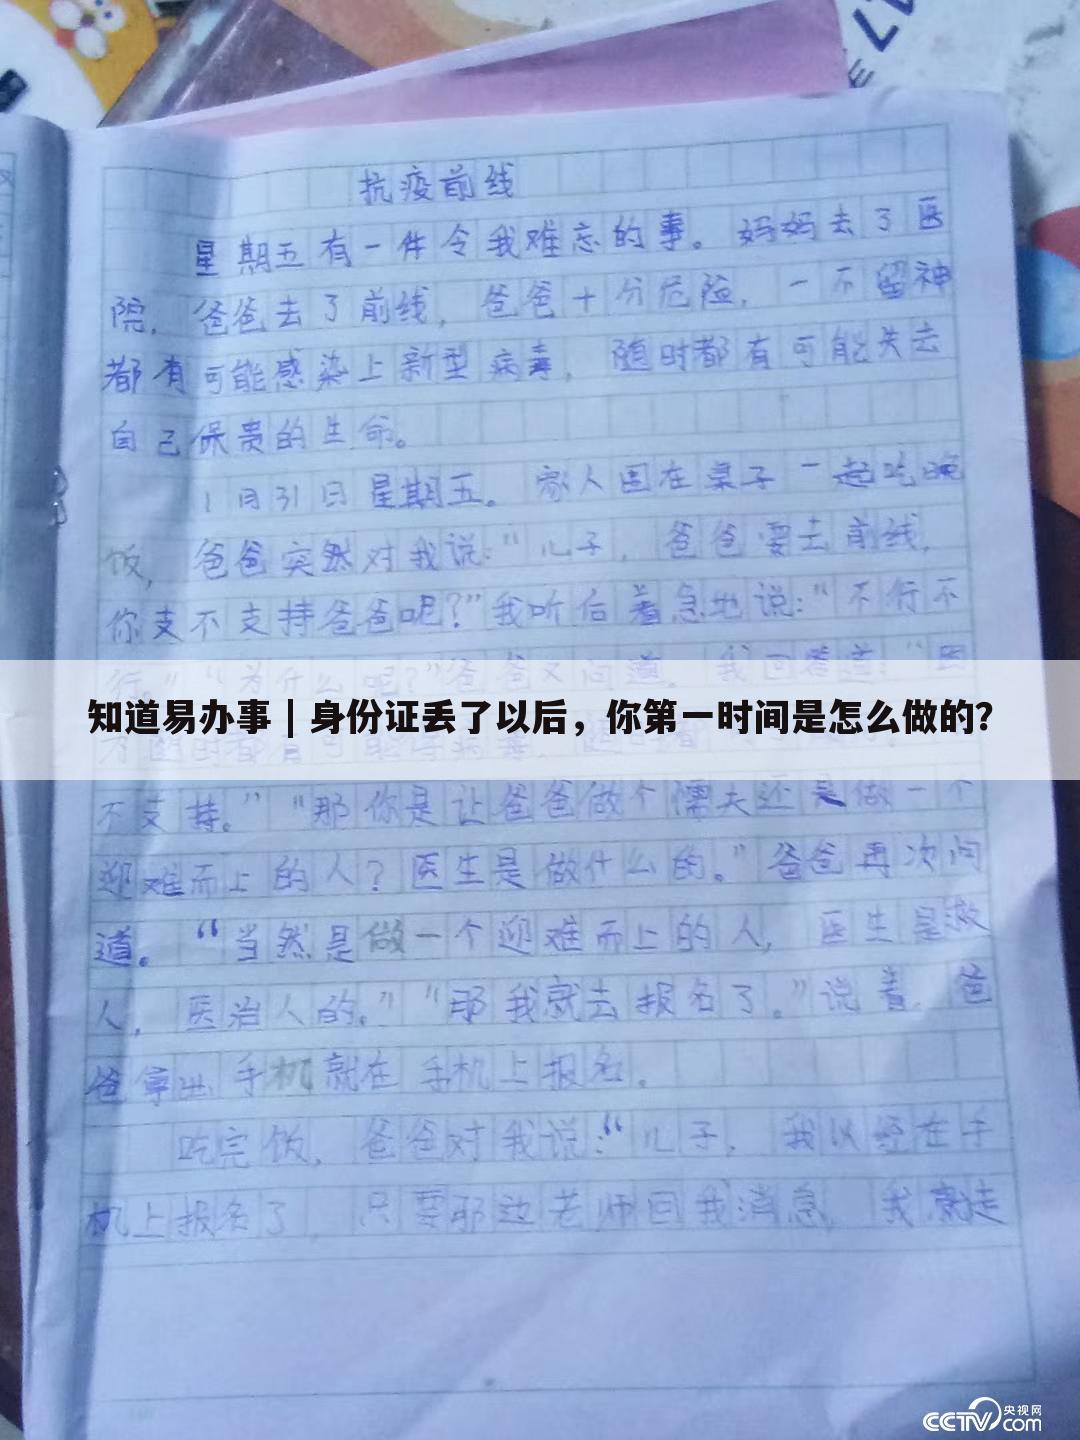 抗疫前线
星期五有一件令我难忘的事。妈妈去了医
院，爸爸去了前线，爸爸十分危险，一不留神
都有可能感染上新型病毒，随时都有可能失去
自己保贵的生命。
1月31日星期五。家人围在桌子一起吃晚
饭，爸爸突然对我说：“儿子，爸爸要去前线，
你支不支持爸爸呢？”我听后着急地说：“不行不
行。”“为什么呢？”爸爸又问道。我回答道：“因
知道易办事 | 身份证丢了以后，你第一时间是怎么做的？
不支持。”“那你是让爸爸做个懦夫还是做一个
迎难而上的人？医生是做什么的。”爸爸再次问
道。“当然是做一个迎难而上的人，医生是救
人，医治人的。”“那我就去报名了。”说着，爸
爸拿出手机就在手机上报名。
吃完饭，爸爸对我说：“儿子，我以经在手
机上报名了，只要那边老师回我消息，我就走
CCTV 央视网
.com